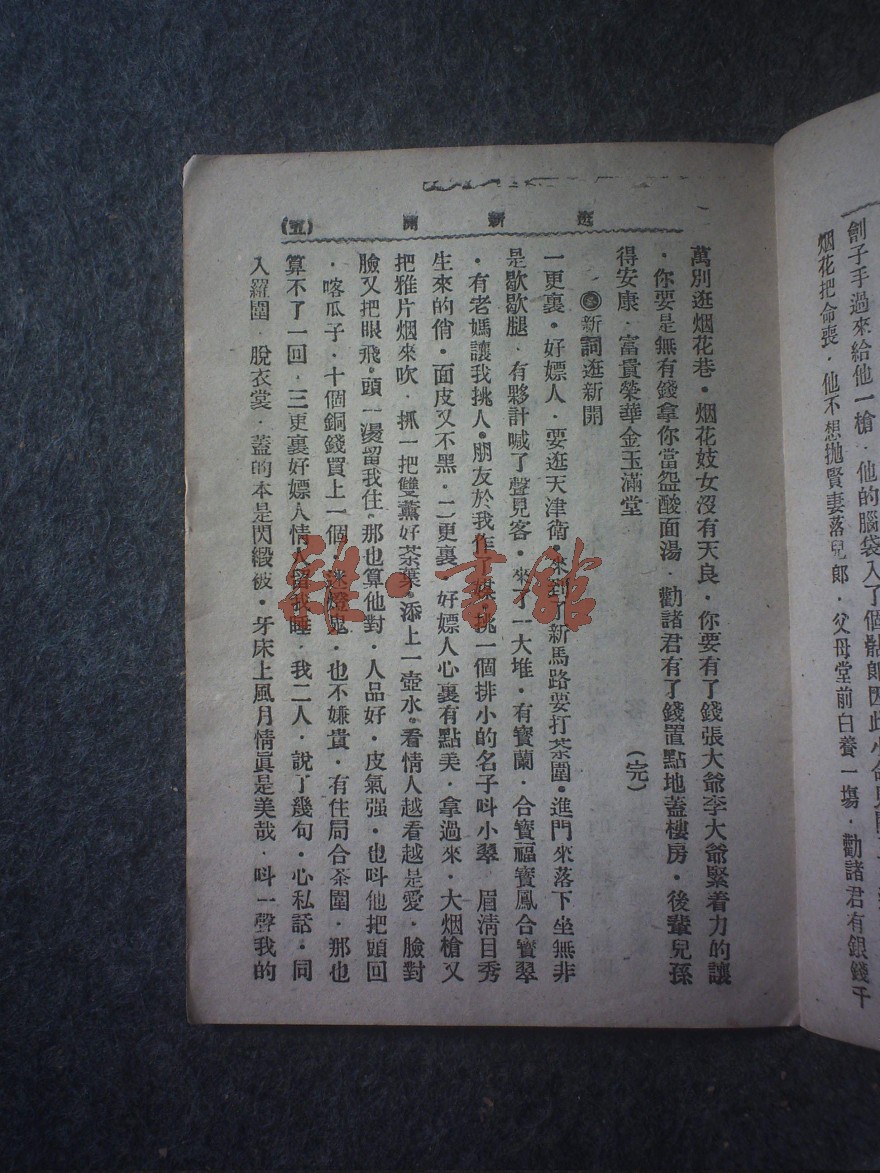 劊子手過來給他一槍．他的腦袋入了個
烟花把命喪．他不想拋賢妻落兒郎．父母堂前白養一塲．勸諸君有銀錢千
逛新開
(五)
萬別逛烟花巷．烟花妓女沒有天良．你要有了錢張大爺李大爺緊着力的讓
．你要是無有錢拿你當盌酸面湯．勸諸君有了錢置點地蓋樓房．後輩兒孫
得安康．富貴榮華金玉滿堂
(完)
新詞逛新開
一更裏．好嫖人．要逛天津衛．來到了新馬路要打茶圍．進門來落下坐無非
是歇歇腿．有夥計喊了聲見客．來了一大堆．有寶蘭．合寶福寶鳳合寶翠
．有老媽讓我挑人．朋友於我作了媒．挑一個排小的名子叫小翠．眉淸目秀
生來的俏．面皮又不黑．二更裏．好嫖人心裏有點美．拿過來．大烟槍又
把雅片烟來吹．抓一把雙薰好茶葉．添上一壺水．看情人越看越是愛．臉對
臉又把眼飛．頭一湯留我住．那也算他對．人品好．皮氣强．也叫他把頭回
．喀瓜子．十個銅錢買上一個．迷燈鬼．也不嫌貴．有住局合茶圍．那也
算不了一回．三更裏好嫖人情人留我睡．我二人．說了幾句．心私話．同
入羅圍．脫衣裳．蓋的本是閃緞被．牙床上風月情眞是美哉．叫一聲我的
雜·書館